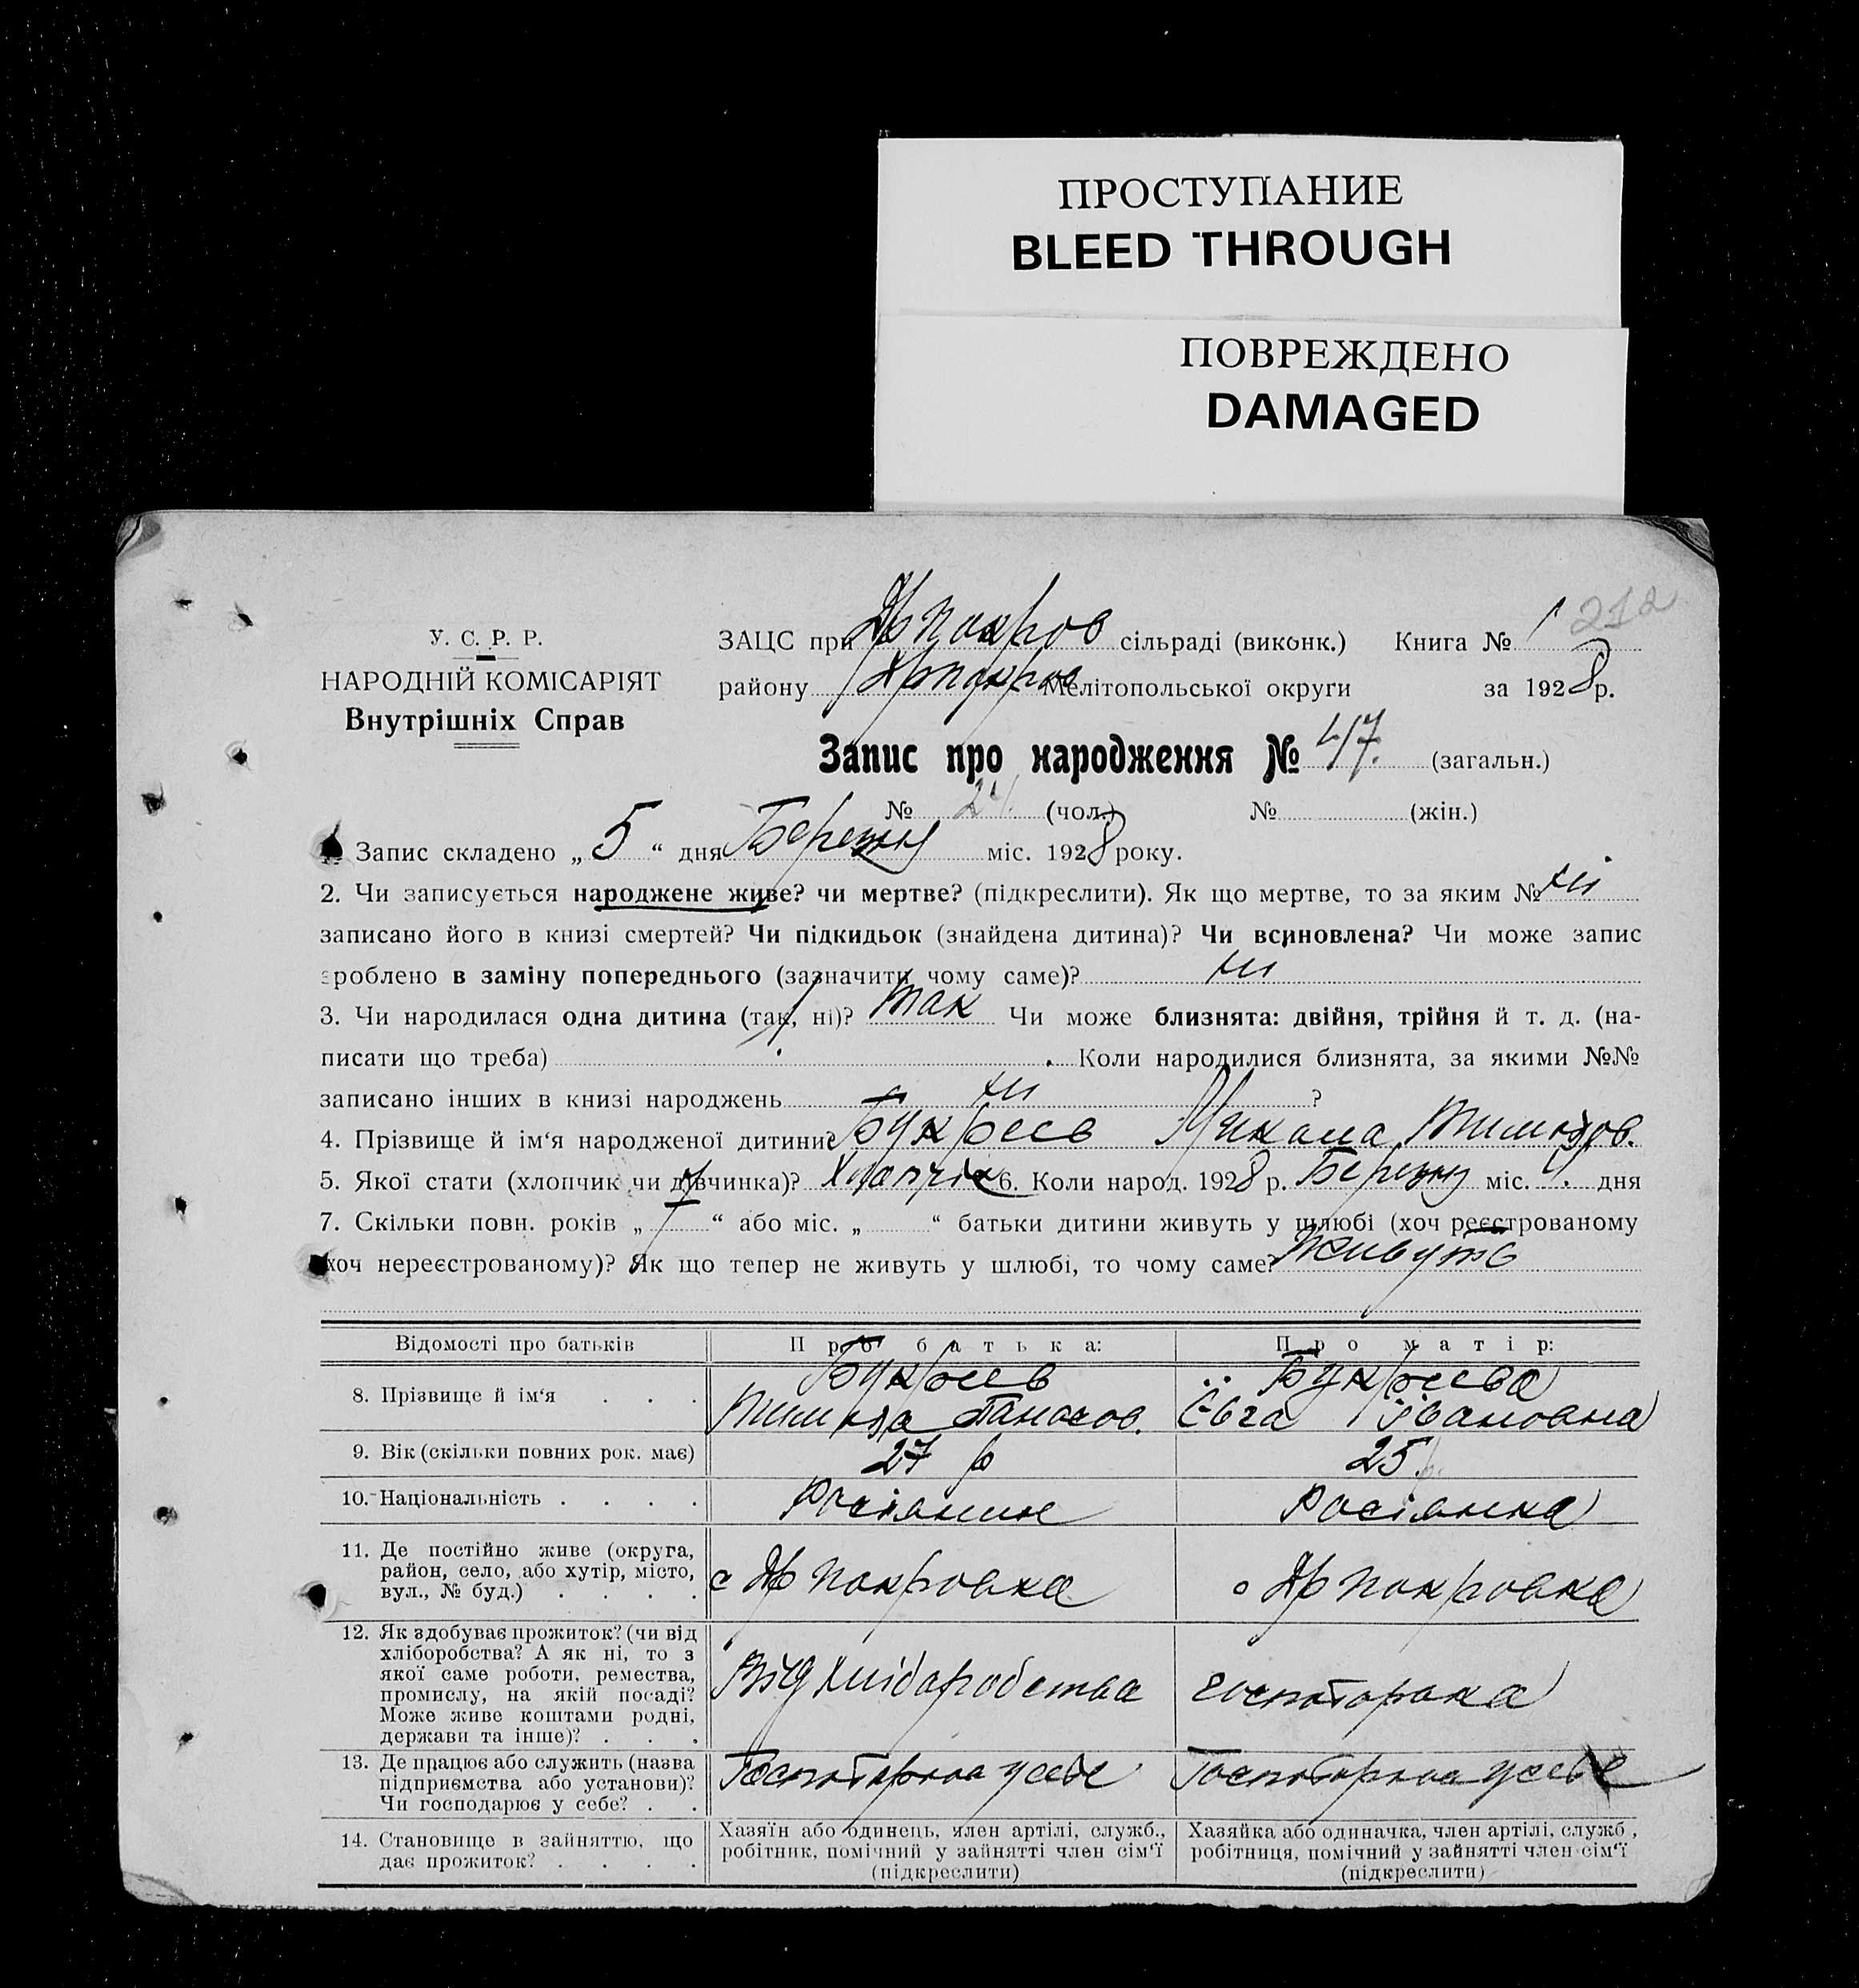 ПРОСТУПАНИЕ
BLEED THROUGH
ПОВРЕЖДЕНО
DAMAGED
212
У. С. Р. Р.
НАРОДНІЙ КОМІСАРІЯТ
Внутрішніх Справ
ЗАЦС при Ярпокров сільраді (виконк.) Книга № 1
району Мелітопольської округи за 1928 р.
Запис про народження № 47. (загальн.)
№ 24 (чол.) № (жін.)
Запис складено „ 5 “ дня Березня міс. 1928 року.
2. Чи записується народжене живе? чи мертве? (підкреслити). Як що мертве, то за яким № ні
записано його в книзі смертей? Чи підкидьок (знайдена дитина)? Чи всиновлена? Чи може запис
зроблено в заміну попереднього (зазначити чому саме)? ні
3. Чи народилася одна дитина (так, ні)? Так Чи може близнята: двійня, трійня й т. д. (на-
писати що треба) Коли народилися близнята, за якими №№
записано інших в книзі народжень ні ?
4. Прізвище й ім‘я народженої дитини? Букреев Микола Тимофов.
5. Якої стати (хлопчик чи дівчинка)? Хлопчік 6. Коли народ. 1928 р. Березня міс. дня
7. Скільки повн. років „ 7 “ або міс. „ “ батьки дитини живуть у шлюбі (хоч реєстрованому
хоч нереєстрованому)? Як що тепер не живуть у шлюбі, то чому саме? Живуть
Відомості про батьків Про батька: Про матір:
8. Прізвище й ім‘я . . . Букреев Букреева
Євга Івановна
9. Вік (скільки повних рок. має) 27 р 25 р.
10. Національність . . . . Росіянин Росіянка
11. Де постійно живе (округа,
район, село, або хутір, місто,
вул., № буд.) . . . .
с Ярпокровка с Ярпокровка
12. Як здобуває прожиток? (чи від
хліборобства? А як ні, то з
якої саме роботи, ремества,
промислу, на якій посаді?
Може живе коштами родні,
держави та інше)? . . .
Від хліборобства господорка
13. Де працює або служить (назва
підприємства або установи)?
Чи господарює у себе? . .
14. Становище в зайняттю, що
дає прожиток? . . . .
Хазяїн або одинець, член артілі, служб.,
робітник, помічний у зайнятті член сім‘ї
(підкреслити)
Хазяйка або одиначка, член артілі, служб.,
робітниця, помічний у зайнятті член сім‘ї
(підкреслити)